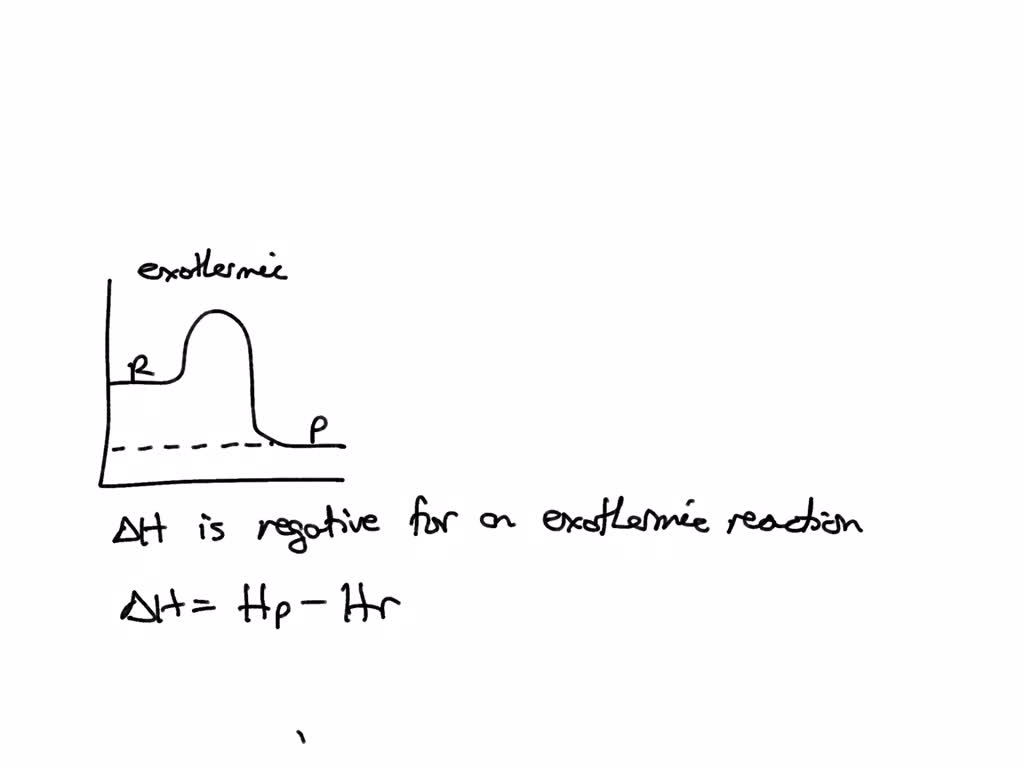 exothermic
R
P
ΔH is negative for an exothermic reaction
ΔH = Hp - Hr